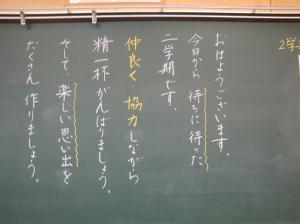 2学
おはようございます。
今日から 待ちに待った
二学期です。
仲良く 協力しながら
精一杯がんばりましょう。
そして、楽しい思い出を
たくさん 作りましょう。